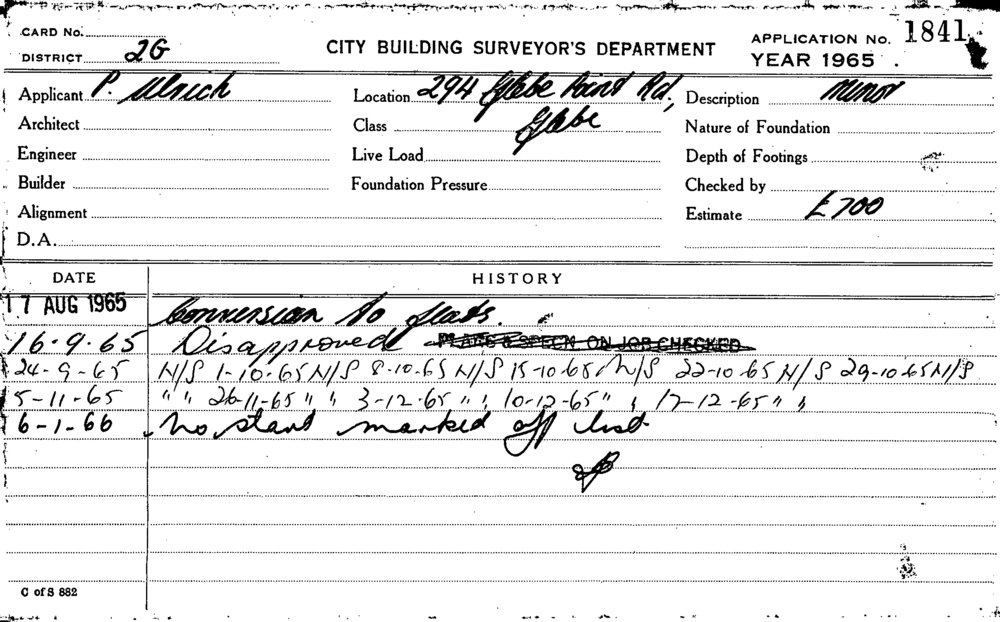 CARD No.
DISTRICT 2G
CITY BUILDING SURVEYOR'S DEPARTMENT
APPLICATION No. 1841
YEAR 1965
Applicant P. Ulrich
Location 294 Glebe Point Rd, Glebe
Description Minor
Architect
Class
Nature of Foundation
Engineer
Live Load
Depth of Footings
Builder
Foundation Pressure
Checked by
Alignment
Estimate £700
D.A.
DATE HISTORY
17 AUG 1965 Conversion to flats.
16-9-65 Disapproved PLANS & SPECN. ON JOB CHECKED
24-9-65 N/S 1-10-65 N/S 8-10-65 N/S 15-10-65 N/S 22-10-65 N/S 29-10-65 N/S
5-11-65 " " 26-11-65 " " 3-12-65 " " 10-12-65 " " 17-12-65 " "
6-1-66 No start marked off list
C of S 882